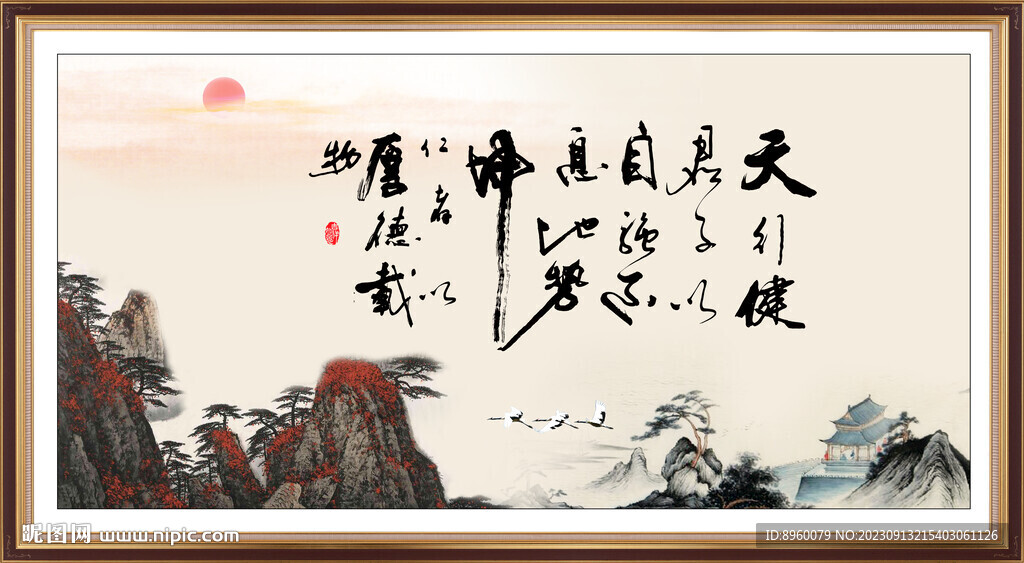 天行健
君子以
自強不
息地勢
坤
仁者以
厚德載
物
昵图网 www.nipic.com
ID:8960079 NO:20230913215403061126